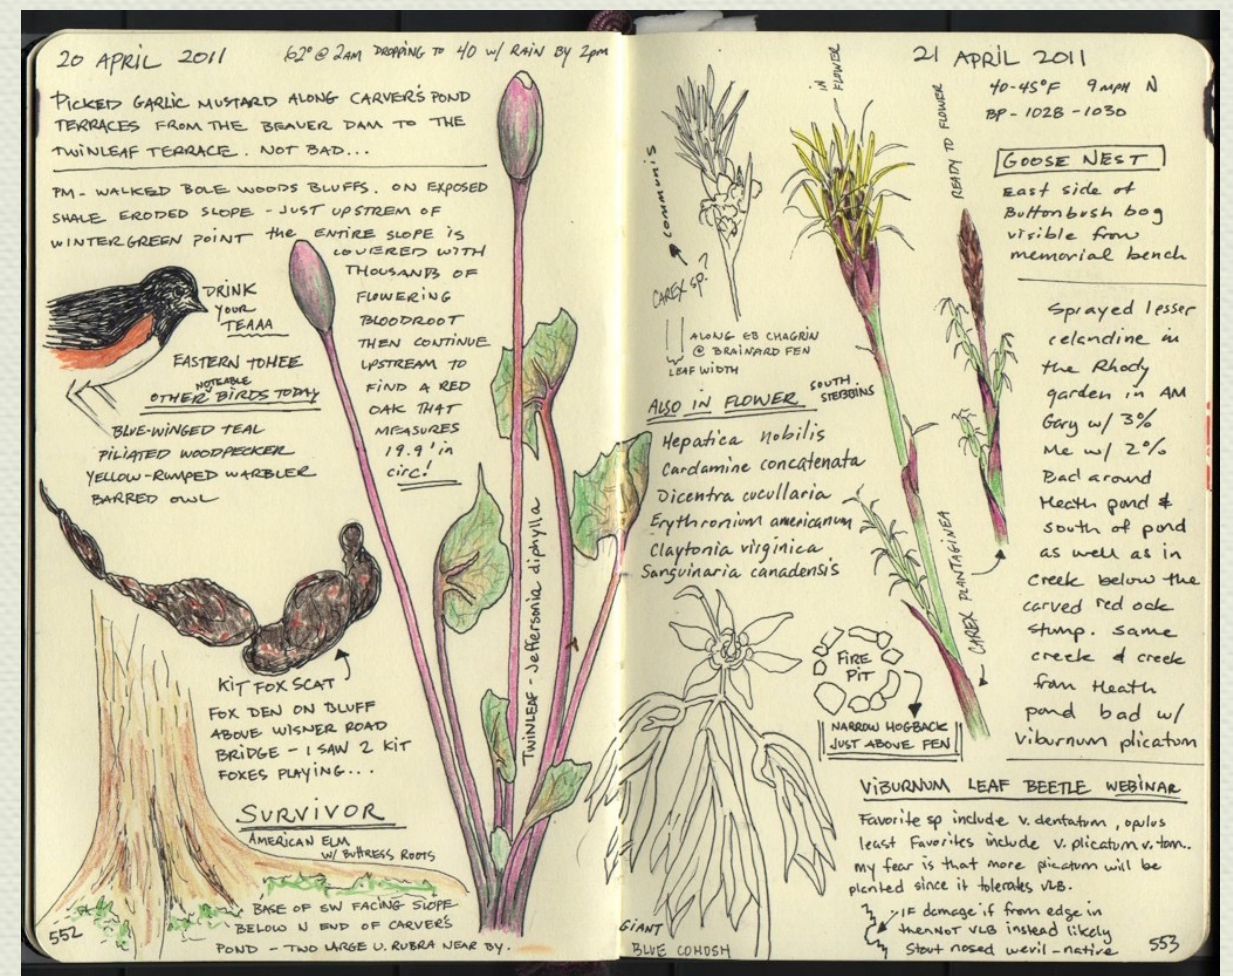 20 APRIL 2011
62° @ 2AM DROPPING TO 40 W/ RAIN BY 2pm
PICKED GARLIC MUSTARD ALONG CARVER'S POND
TERRACES FROM THE BEAVER DAM TO THE
TWINLEAF TERRACE. NOT BAD...
PM - WALKED BOLE WOODS BLUFFS. ON EXPOSED
SHALE ERODED SLOPE - JUST UPSTREM OF
WINTERGREEN POINT the ENTIRE SLOPE IS
COVERED WITH
THOUSANDS OF
FLOWERING
BLOODROOT
THEN CONTINUE
UPSTREAM TO
FIND A RED
OAK THAT
MEASURES
19.9' in
circ!
DRINK
YOUR
TEAAA
EASTERN TOHEE
NOTEABLE
OTHER BIRDS TODAY
BLUE-WINGED TEAL
PILIATED WOODPECKER
YELLOW-RUMPED WARBLER
BARRED OWL
KIT FOX SCAT
FOX DEN ON BLUFF
ABOVE WISNER ROAD
BRIDGE - I SAW 2 KIT
FOXES PLAYING...
SURVIVOR
AMERICAN ELM
W/ BUTTRESS ROOTS
BASE OF SW FACING SLOPE
BELOW N END OF CARVER'S
POND - TWO LARGE U. RUBRA NEAR BY.
552
TWINLEAF - Jeffersonia diphylla
21 APRIL 2011
40-45°F 9 MPH N
BP - 1028 - 1030
communis
CAREX SP.?
IN FLOWER
READY TO FLOWER
ALONG EB CHAGRIN
@ BRAINARD FEN
LEAF WIDTH
ALSO IN FLOWER
SOUTH
STEBBINS
Hepatica nobilis
Cardamine concatenata
Dicentra cucullaria
Erythronium americanum
Claytonia virginica
Sanguinaria canadensis
CAREX PLANTAGINEA
FIRE
PIT
NARROW HOGBACK
JUST ABOVE FEN
GIANT
BLUE COHOSH
GOOSE NEST
East side of
Buttonbush bog
visible from
memorial bench
Sprayed lesser
celandine in
the Rhody
garden in AM
Gary w/ 3%
Me w/ 2%
Bad around
Heath pond &
south of pond
as well as in
creek below the
carved red oak
stump. same
creek & creek
from Heath
pond bad w/
Viburnum plicatum
VIBURNUM LEAF BEETLE WEBINAR
Favorite sp include v. dentatum, opulus
least Favorites include v. plicatum v. tom..
my fear is that more picatum will be
planted since it tolerates VLB.
IF damage if from edge in
then NOT VLB instead likely
Stout nosed wevil - native
553